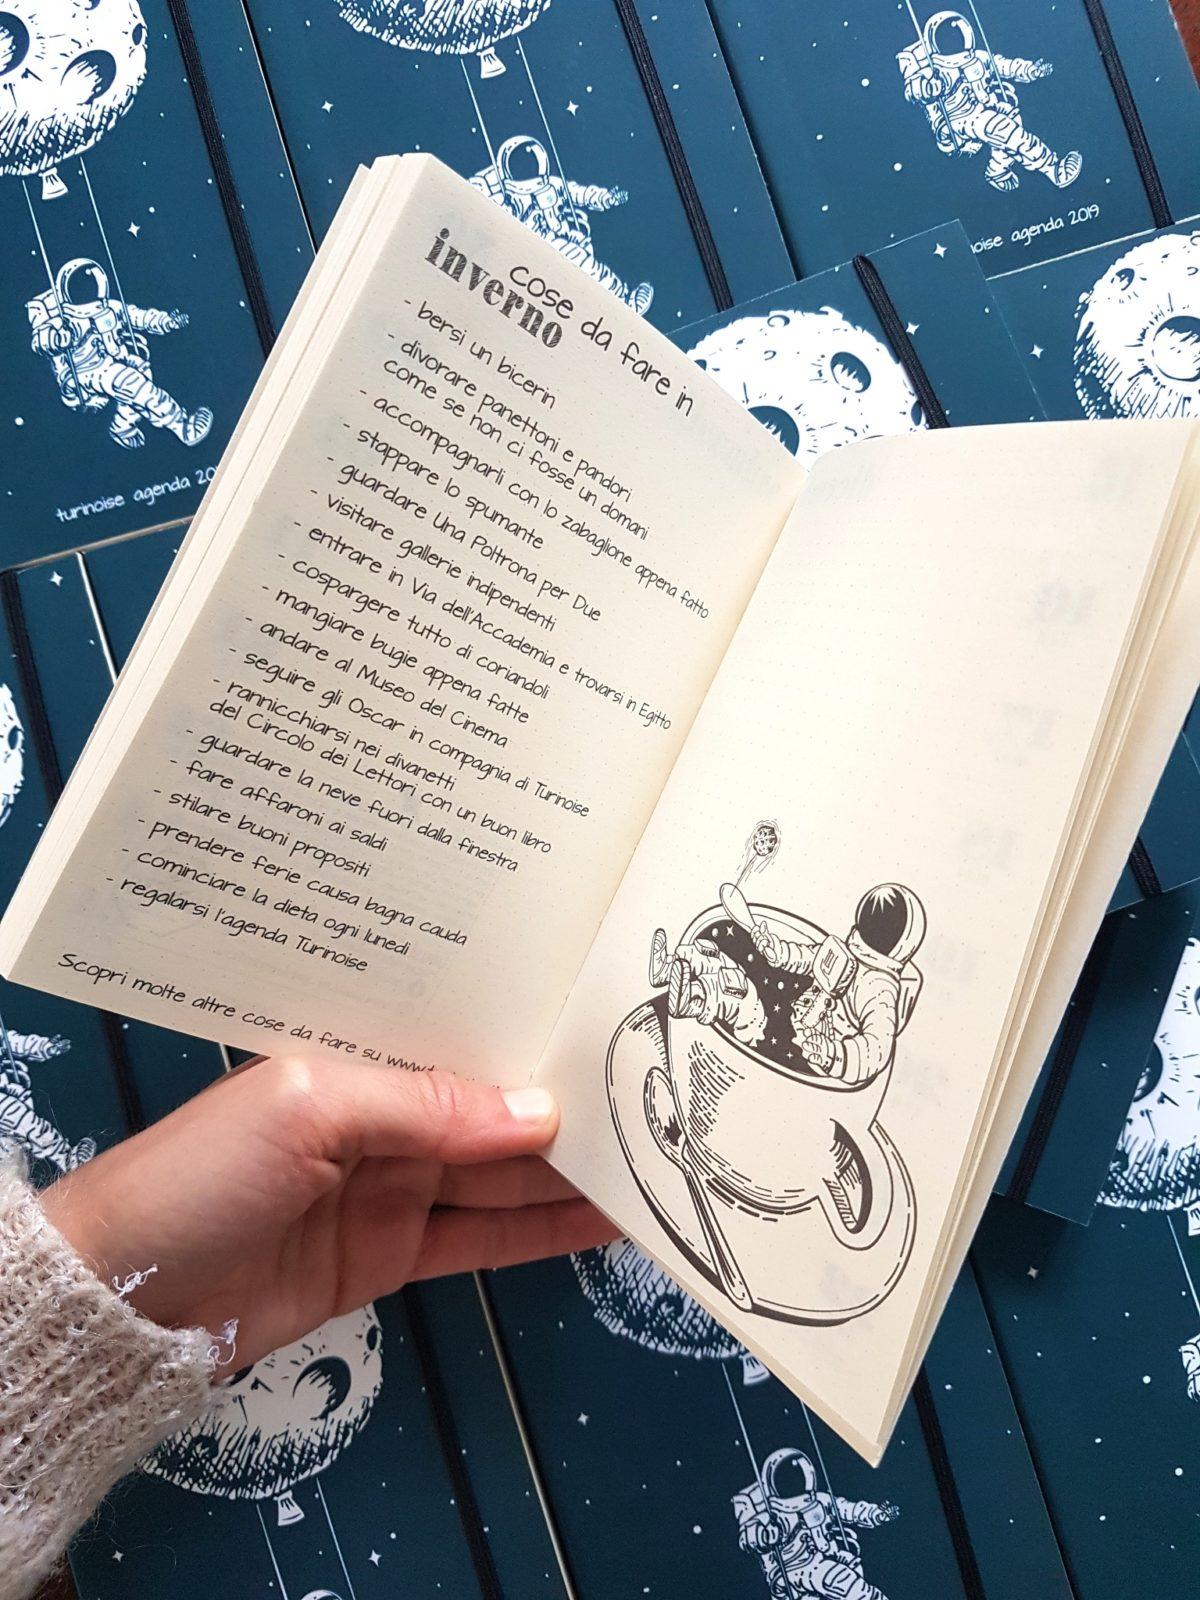 cose da fare in
inverno
- bersi un bicerin
- divorare panettoni e pandori
come se non ci fosse un domani
- accompagnarli con lo zabaglione appena fatto
- stappare lo spumante
- guardare Una Poltrona per Due
- visitare gallerie indipendenti
- entrare in Via dell'Accademia e trovarsi in Egitto
- cospargere tutto di coriandoli
- mangiare bugie appena fatte
- andare al Museo del Cinema
- seguire gli Oscar in compagnia di Turinoise
- rannicchiarsi nei divanetti
del Circolo dei Lettori con un buon libro
- guardare la neve fuori dalla finestra
- fare affaroni ai saldi
- stilare buoni propositi
- prendere ferie causa bagna cauda
- cominciare la dieta ogni lunedì
- regalarsi l'agenda Turinoise
Scopri molte altre cose da fare su
turinoise agenda
agenda 2019